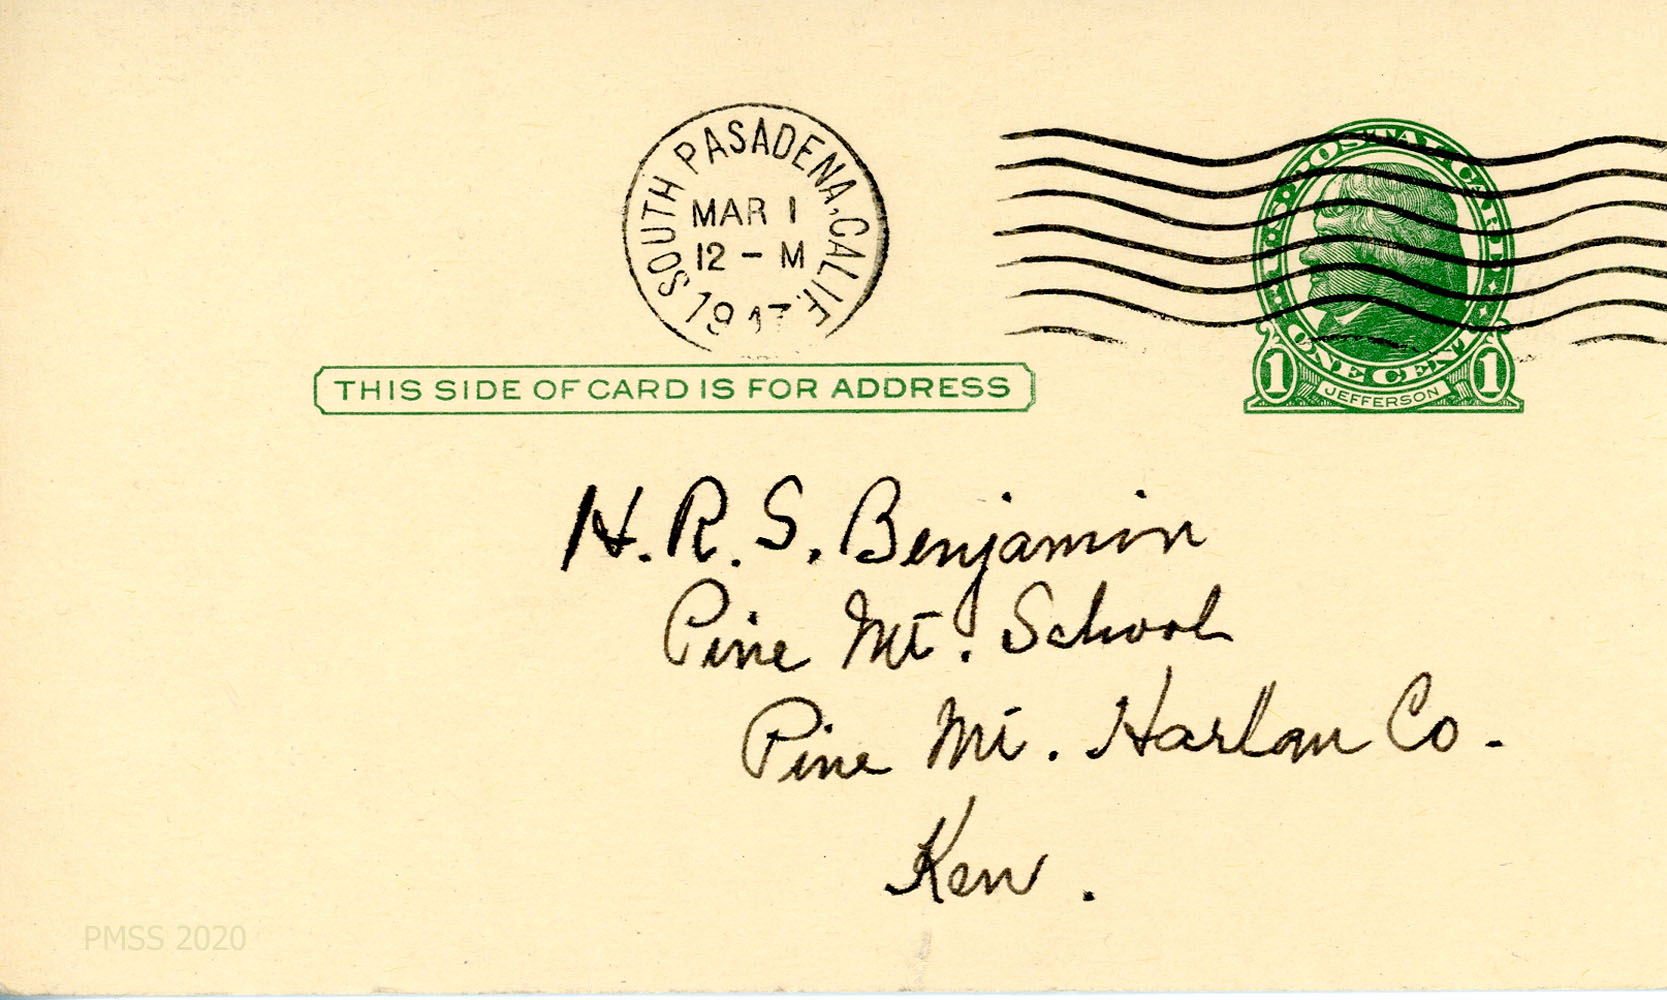 SOUTH PASADENA, CALIF.
MAR 1
12 - M
1947
U.S. POSTAL CARD
ONE CENT
1 JEFFERSON 1
THIS SIDE OF CARD IS FOR ADDRESS
H. R. S. Benjamin
Pine Mt. School
Pine Mt. Harlan Co.
Ken.
PMSS 2020